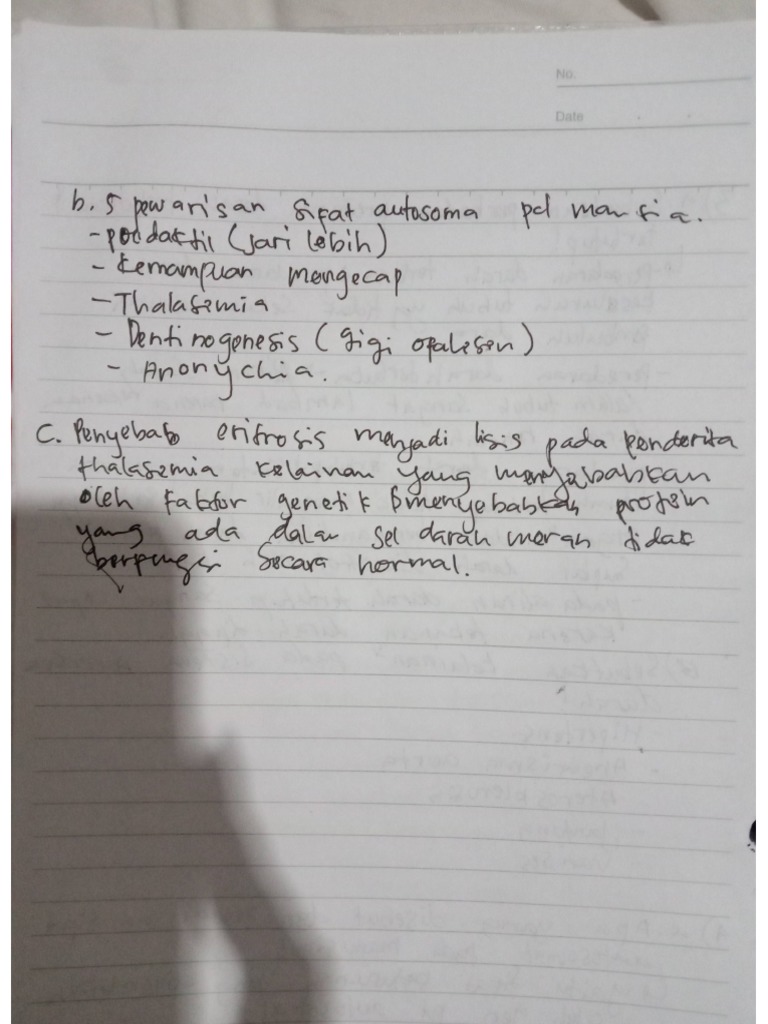 No.
Date
b. 5 pewarisan sifat autosoma pd manusia.
- polidaktil (jari lebih)
- Kemampuan mengecap
- Thalasemia
- Dentinogenesis (gigi opalesen)
- Anonychia.
C. Penyebab eritrosis menjadi lisis pada penderita
thalasemia kelainan yang menyababkan
oleh faktor genetik menyebabkan protein
yang ada dalam sel darah merah tidak
berpungsi secara normal.